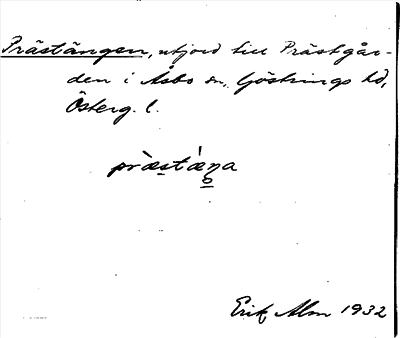 Prästängen, utjord till Prästgår-
den i Åsbo sn, Göstrings hd,
Österg. l.
præ̀stǽŋa
Erik Alm 1932